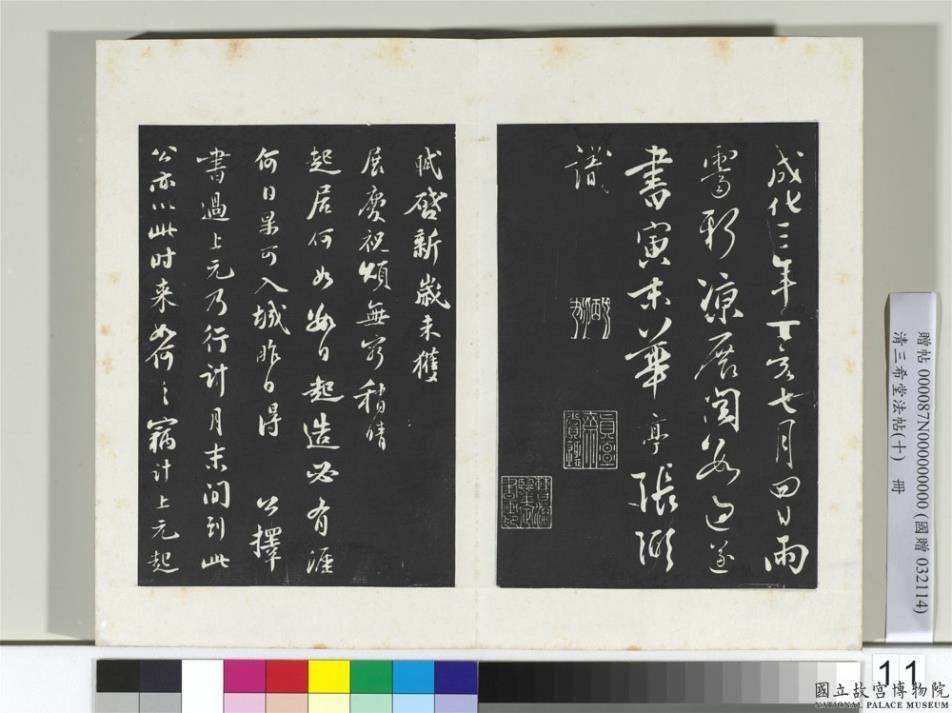 成化三年丁亥七月四日雨
霽新涼展閱數過遂
書末華亭張弼
識
軾啓新歲未獲
展慶祝頌無窮稍晴
起居何如數日起造必有涯
何日果可入城昨日得 公擇
書過上元乃行計月末間到此
公亦以此時來如何〻竊計上元起
贈帖 000087N000000000 (國贈 032114)
清三希堂法帖(十) 冊
11
國立故宮博物院
NATIONAL PALACE MUSEUM